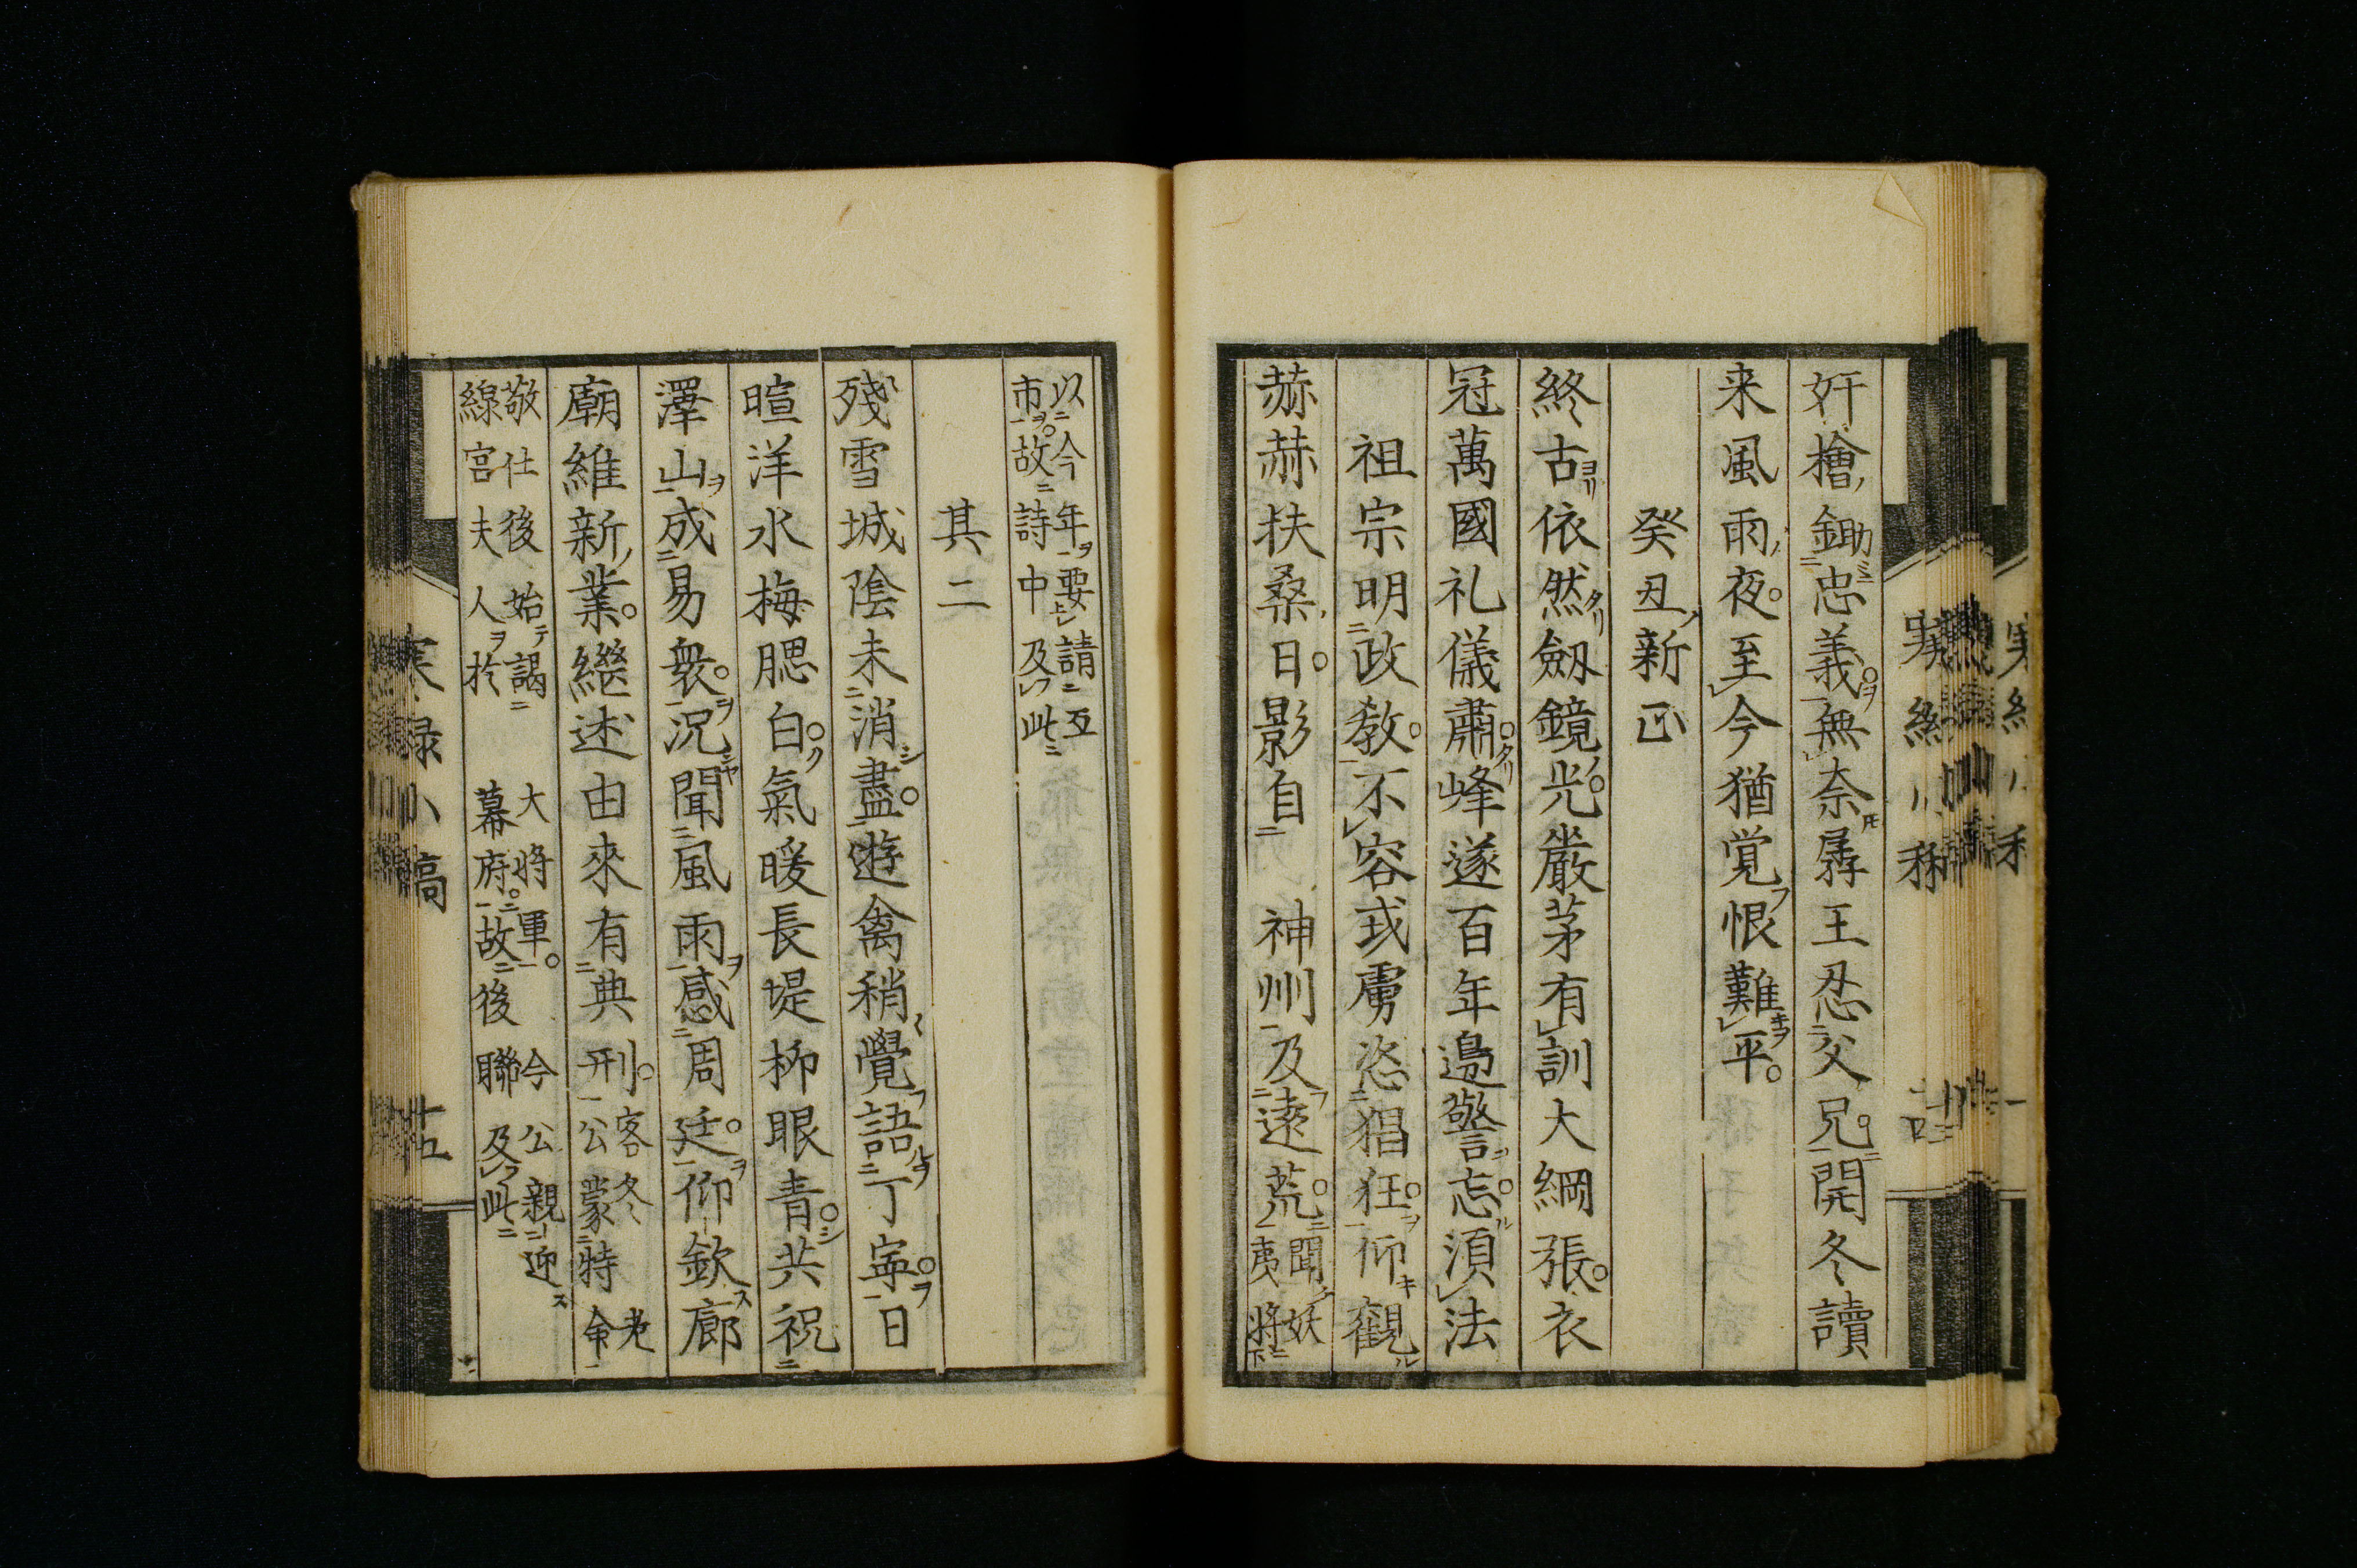 奸檜鋤忠義無奈孱王忍父兄開冬讀
来風雨夜至今猶覚恨難平
癸丑新正
終古依然劔鏡光嚴茅有訓大綱張衣
冠萬國礼儀肅峰遂百年邊警忘須法
祖宗明政教不容戎虜恣猖狂仰觀
赫赫扶桑日影自神州及遠荒聞妖
夷將
以今年要請互
市故詩中及此
其二
殘雪城陰未消盡遊禽稍覺語丁寧日
暄洋水梅腮白氣暖長堤柳眼青共祝
澤山成易衆況聞風雨感周廷仰欽廊
廟維新業繼述由來有典刑客冬老
公蒙特命
敬仕後始謁大將軍今公親迎
線宮夫人於幕府故後聯及此